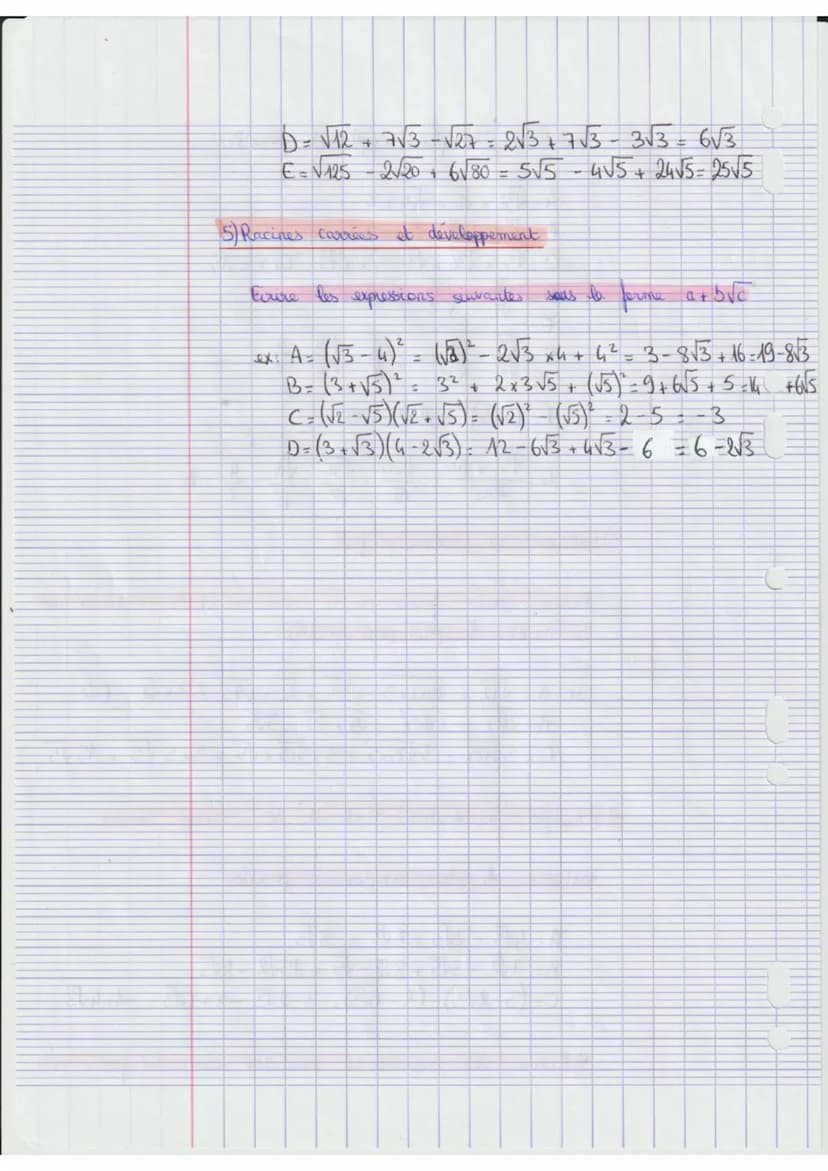 D = √12 + 7√3 - √27 = 2√3 + 7√3 - 3√3 = 6√3
E = √125 - 2√20 + 6√80 = 5√5 - 4√5 + 24√5 = 25√5
5) Racines carrées et développement
Ecrire les expressions suivantes sous la forme a + b√c
ex: A = (√3 - 4)² = (√3)² - 2√3 × 4 + 4² = 3 - 8√3 + 16 = 19 - 8√3
B = (3 + √5)² = 3² + 2 × 3√5 + (√5)² = 9 + 6√5 + 5 = 14 + 6√5
C = (√2 - √5)(√2 + √5) = (√2)² - (√5)² = 2 - 5 = -3
D = (3 + √3)(4 - 2√3) = 12 - 6√3 + 4√3 - 6 = 6 - 2√3